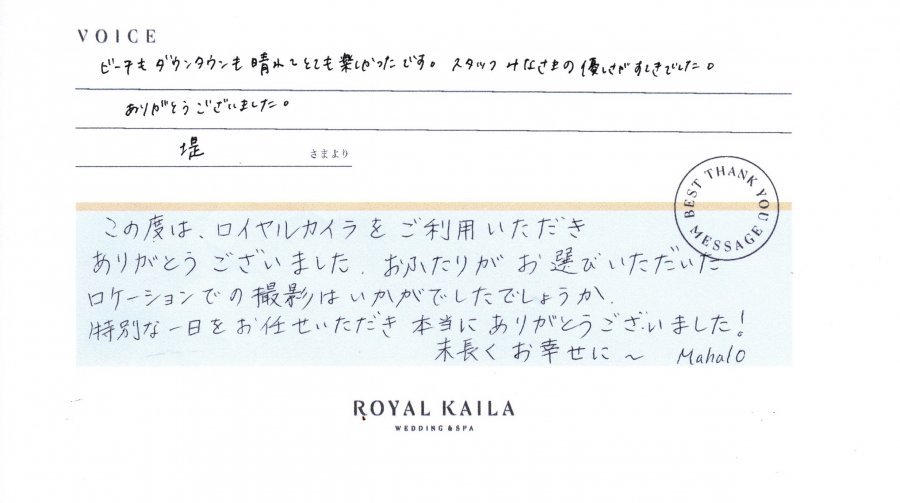 VOICE
ビーチもダウンタウンも晴れてとても楽しかったです。スタッフみなさまの優しさがすてきでした。
ありがとうございました。
堤 さまより
BEST THANK YOU MESSAGE
この度は、ロイヤルカイラをご利用いただき
ありがとうございました。おふたりがお選びいただいた
ロケーションでの撮影はいかがでしたでしょうか。
特別な一日をお任せいただき本当にありがとうございました!
末長くお幸せに〜 Mahalo
ROYAL KAILA
WEDDING & SPA